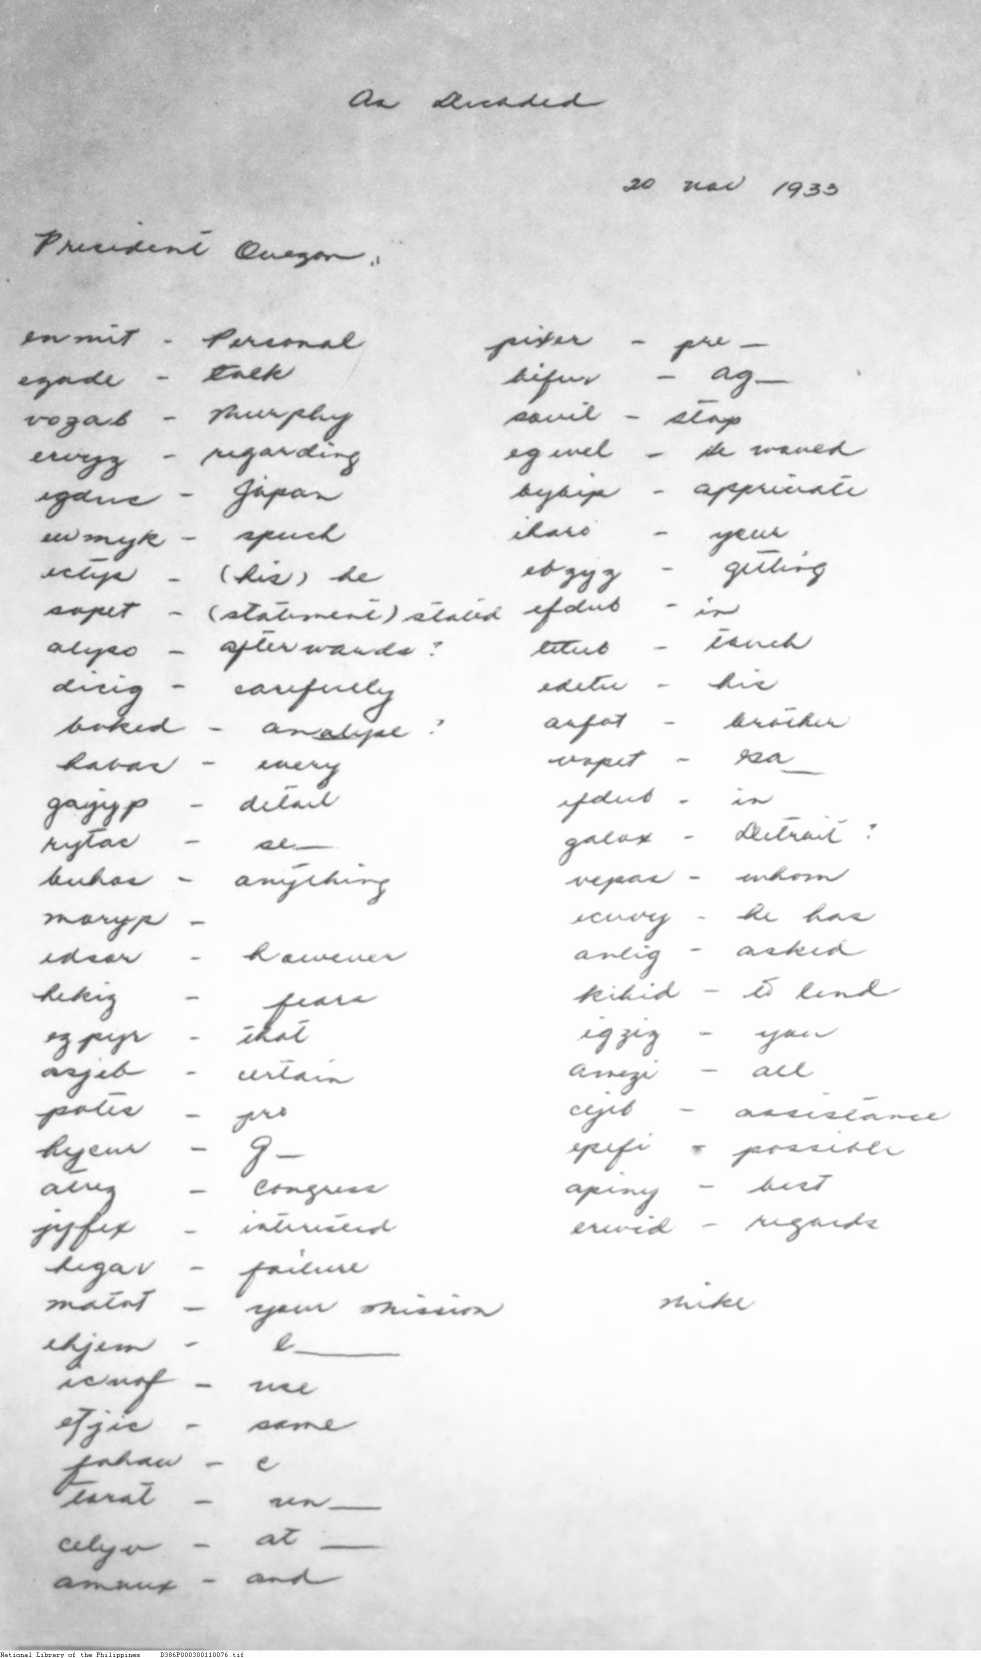 As Decoded
20 Nov 1933
President Quezon:
enmit - Personal
ezade - talk
vozab - Murphy
ervyz - regarding
egduc - Japan
ewmyk - speech
ectyp - (his) he
sapet - (statement) stated
alyso - afterwards?
dicig - carefully
boked - analyse?
havac - every
gajyp - detail
rytac - se__
buhas - anything
moryp -
edsar - however
hekiz - fears
ezpyr - that
asjeb - certain
potes - pro
hycur - g_
atreg - congress
jyfex - interested
hegav - failure
matot - your mission
ehjem - l____
icnof - use
efjic - same
johaw - c
torat - un__
celyv - at __
amaux - and
pixer - pre_
bifux - ag_
sovil - stop
egwel - He waved
bybip - appreciate
iharo - your
ebzyz - getting
efdub - in
titub - touch
edetu - his
arfot - brother
vopet - rsa__
efdub - in
galox - Detroit?
vepas - whom
ecuvy - he has
anlig - asked
kihid - to lend
igziz - you
amezi - all
cijeb - assistance
epefi - possible
apiny - best
erevid - regards
Mike
National Library of the Philippines D386P000300110076.tif